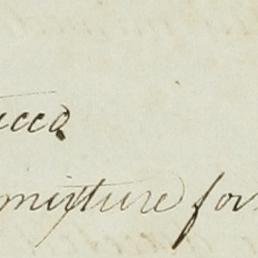 ucca
mixture for